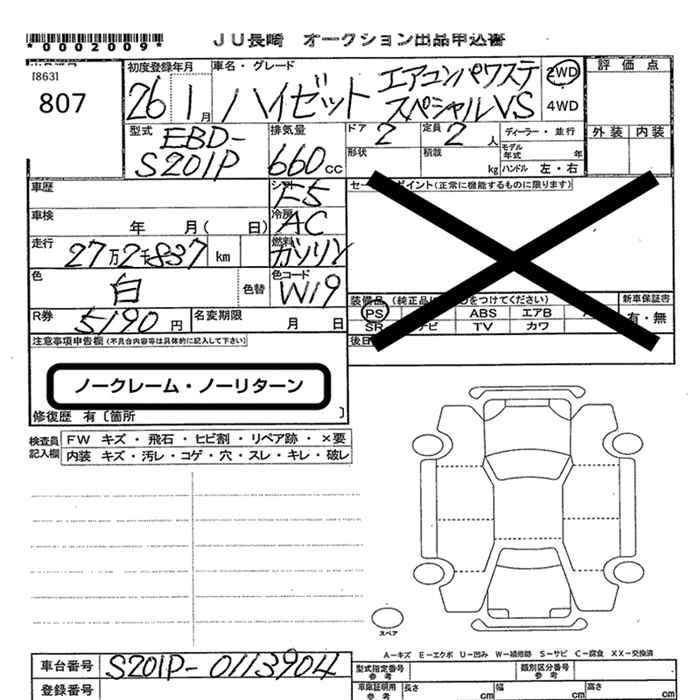 *0002009* JU長崎 オークション出品申込書
[863]
807
初度登録年月 車名・グレード
26 1月 ハイゼット エアコンパワステ スペシャルVS
2WD
4WD
評価点
外装 内装
型式 EBD-S201P
排気量 660cc
ドア 2 定員 2人 ディーラー・並行
形状 積載 kg モデル年式 年
ハンドル 左・右
車歴 F5
車検 年 月( 日) 冷房 AC
走行 27万2千837 km 燃料 ガソリン
色 白 色替 色コード W19
R券 5190円 名変期限 月 日
ポイント(正常に機能するものに限ります)
装備品 (純正品 をつけてください) 新車保証書
PS ABS エアB 有・無
SR ナビ TV カワ
後日
注意事項申告欄 (不具合内容等は具体的に記入して下さい)
ノークレーム・ノーリターン
修復歴 有〔箇所 〕
検査員記入欄 FW キズ・飛石・ヒビ割・リペア跡・×要
内装 キズ・汚レ・コゲ・穴・スレ・キレ・破レ
スペア
A-キズ E-エクボ U-凹み W-補修跡 S-サビ C-腐食 XX-交換済
車台番号 S201P-0113904
登録番号
型式指定番号 参考 類別区分番号 参考
車庫証明用 参考 長さ cm 幅 cm 高さ cm